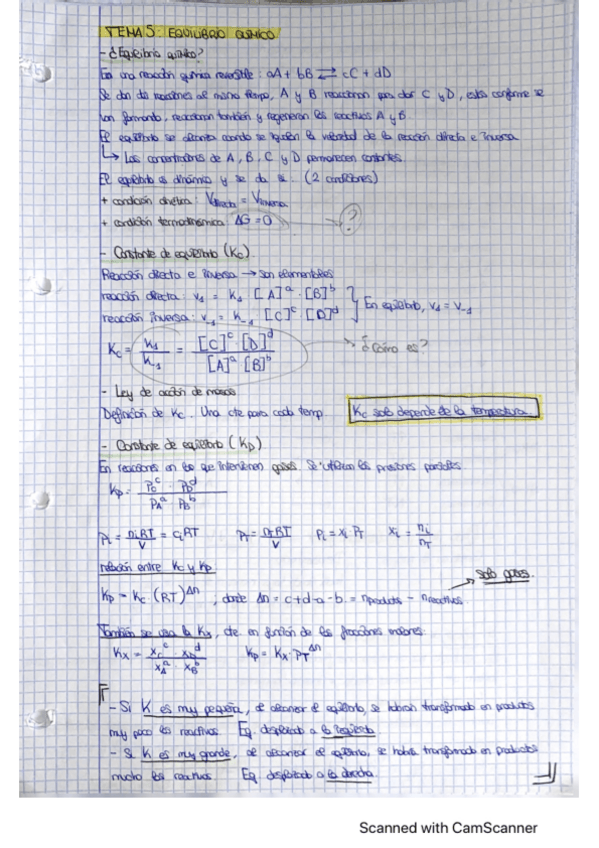 TEMA 5: EQUILIBRIO QUÍMICO
- ¿Equilibrio químico?
En una reacción química reversible: aA + bB ⇄ cC + dD
Se dan dos reacciones al mismo tiempo, A y B reaccionan para dar C y D, estos conforme se
van formando, reaccionan también y regeneran los reactivos A y B.
El equilibrio se alcanza cuando se igualan la velocidad de la reacción directa e inversa
↳ Las concentraciones de A, B, C y D permanecen constantes.
El equilibrio es dinámico y se da si: (2 condiciones)
+ condición cinética: Vdirecta = Vinversa
+ condición termodinámica: ΔG = 0 → ?
- Constante de equilibrio (Kc).
Reacción directa e inversa → son elementales
reacción directa: v₁ = K₁ [A]ᵃ · [B]ᵇ
reacción inversa: v₋₁ = K₋₁ [C]ᶜ · [D]ᵈ } En equilibrio, v₁ = v₋₁
Kc = K₁ / K₋₁ = [C]ᶜ · [D]ᵈ / [A]ᵃ · [B]ᵇ → ¿Cómo es?
- Ley de acción de masas
Definición de Kc. Una cte para cada temp. Kc solo depende de la temperatura.
- Constante de equilibrio (Kp)
En reacciones en las que intervienen gases. Se utilizan las presiones parciales.
Kp = Pcᶜ · P_Dᵈ / P_Aᵃ P_Bᵇ
Pi = niRT / V = ciRT PT = nTRT / V Pi = xi PT xi = ni / nT
relación entre Kc y Kp
solo gases.
Kp = Kc · (RT)^Δn, donde Δn = c+d-a-b = nproductos - nreactivos
También se usa la Kx, cte. en función de las fracciones molares:
Kx = xcᶜ x_Dᵈ / x_Aᵃ x_Bᵇ Kp = Kx · PT^Δn
- Si K es muy pequeña, al alcanzar el equilibrio, se habrán transformado en productos
muy poco los reactivos. Eq. desplazado a la izquierda
- Si K es muy grande, al alcanzar el equilibrio, se habrá transformado en productos
mucho los reactivos. Eq. desplazado a la derecha.
Scanned with CamScanner